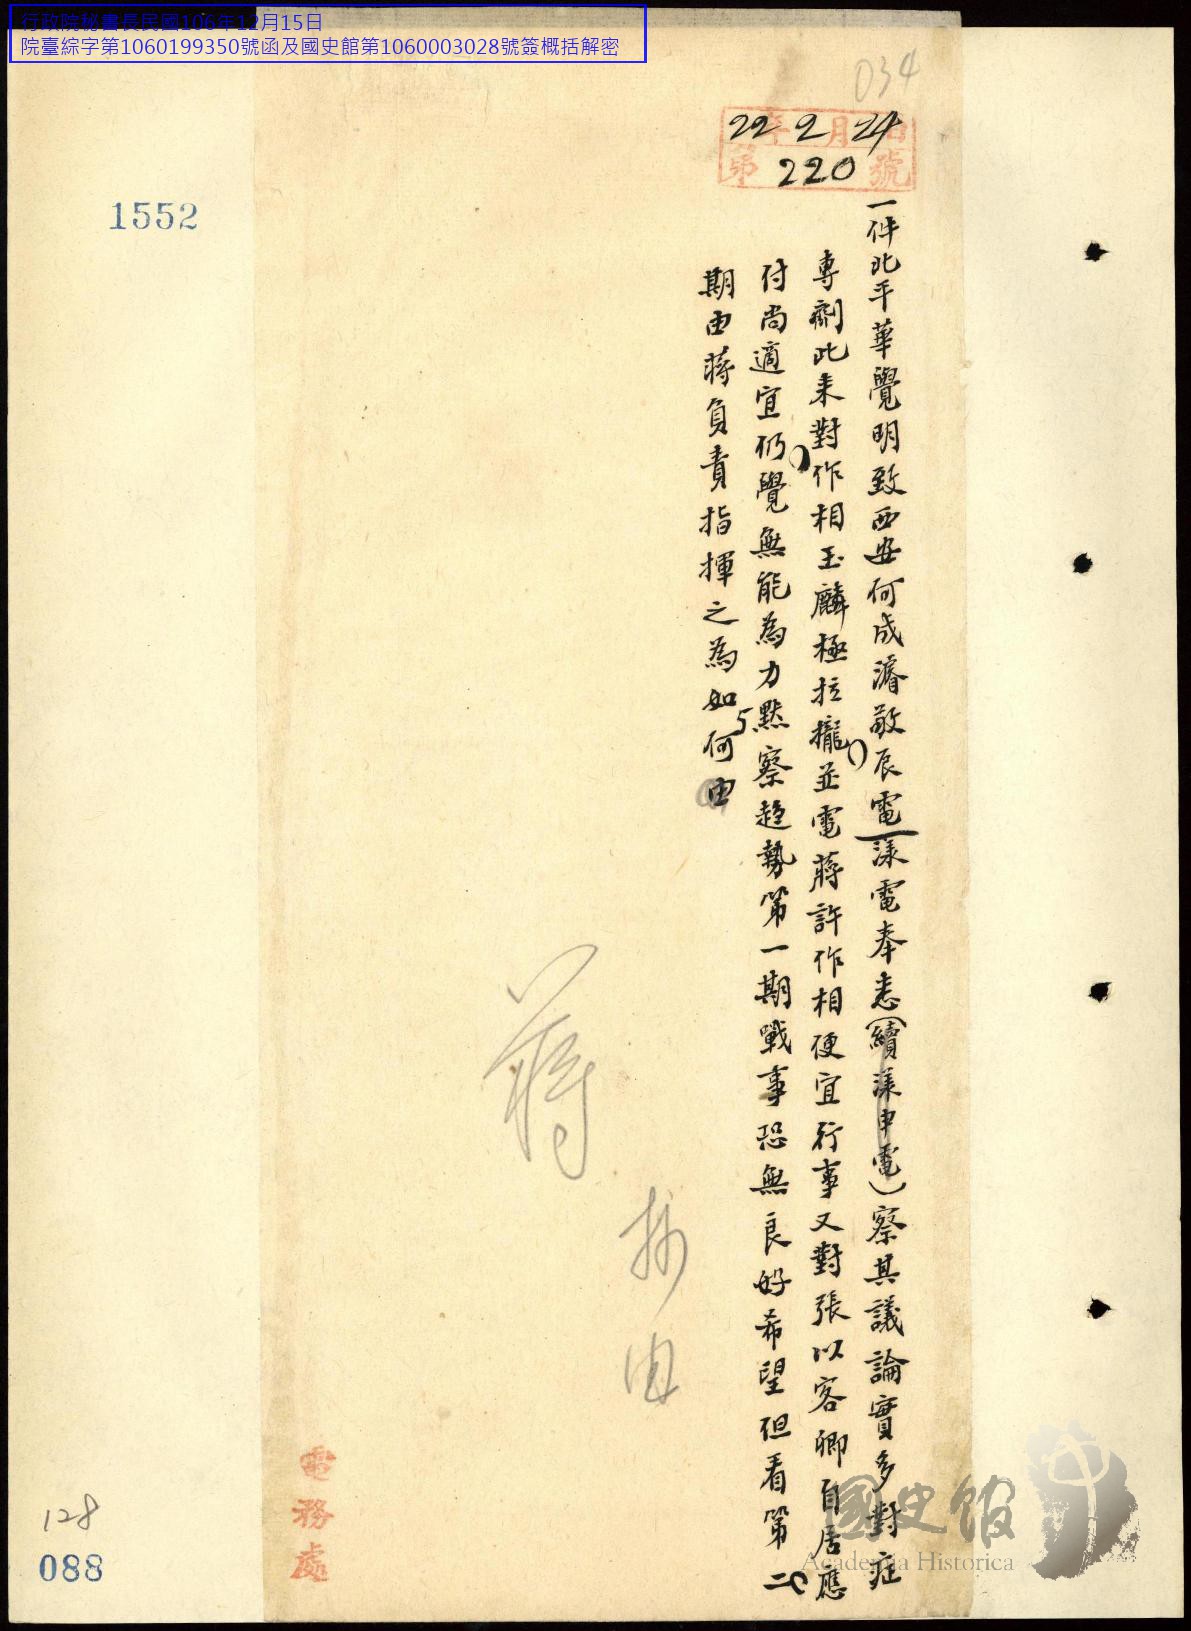 行政院秘書長民國106年12月15日
院臺綜字第1060199350號函及國史館第1060003028號簽概括解密
034
22年2月24日
第220號
1552
一件北平華覺明致西安何成濬敬辰電漾電奉悉(續漾申電)察其議論實多對症
專劑此来對作相玉麟極拉攏並電蔣許作相便宜行事又對張以客卿自居應
付尚適宜仍覺無能為力默察趋勢第一期戰事恐無良好希望但看第二
期由蔣負責指揮之為如何由
蔣
抄
電務處
128
088
國史館
Academia Historica